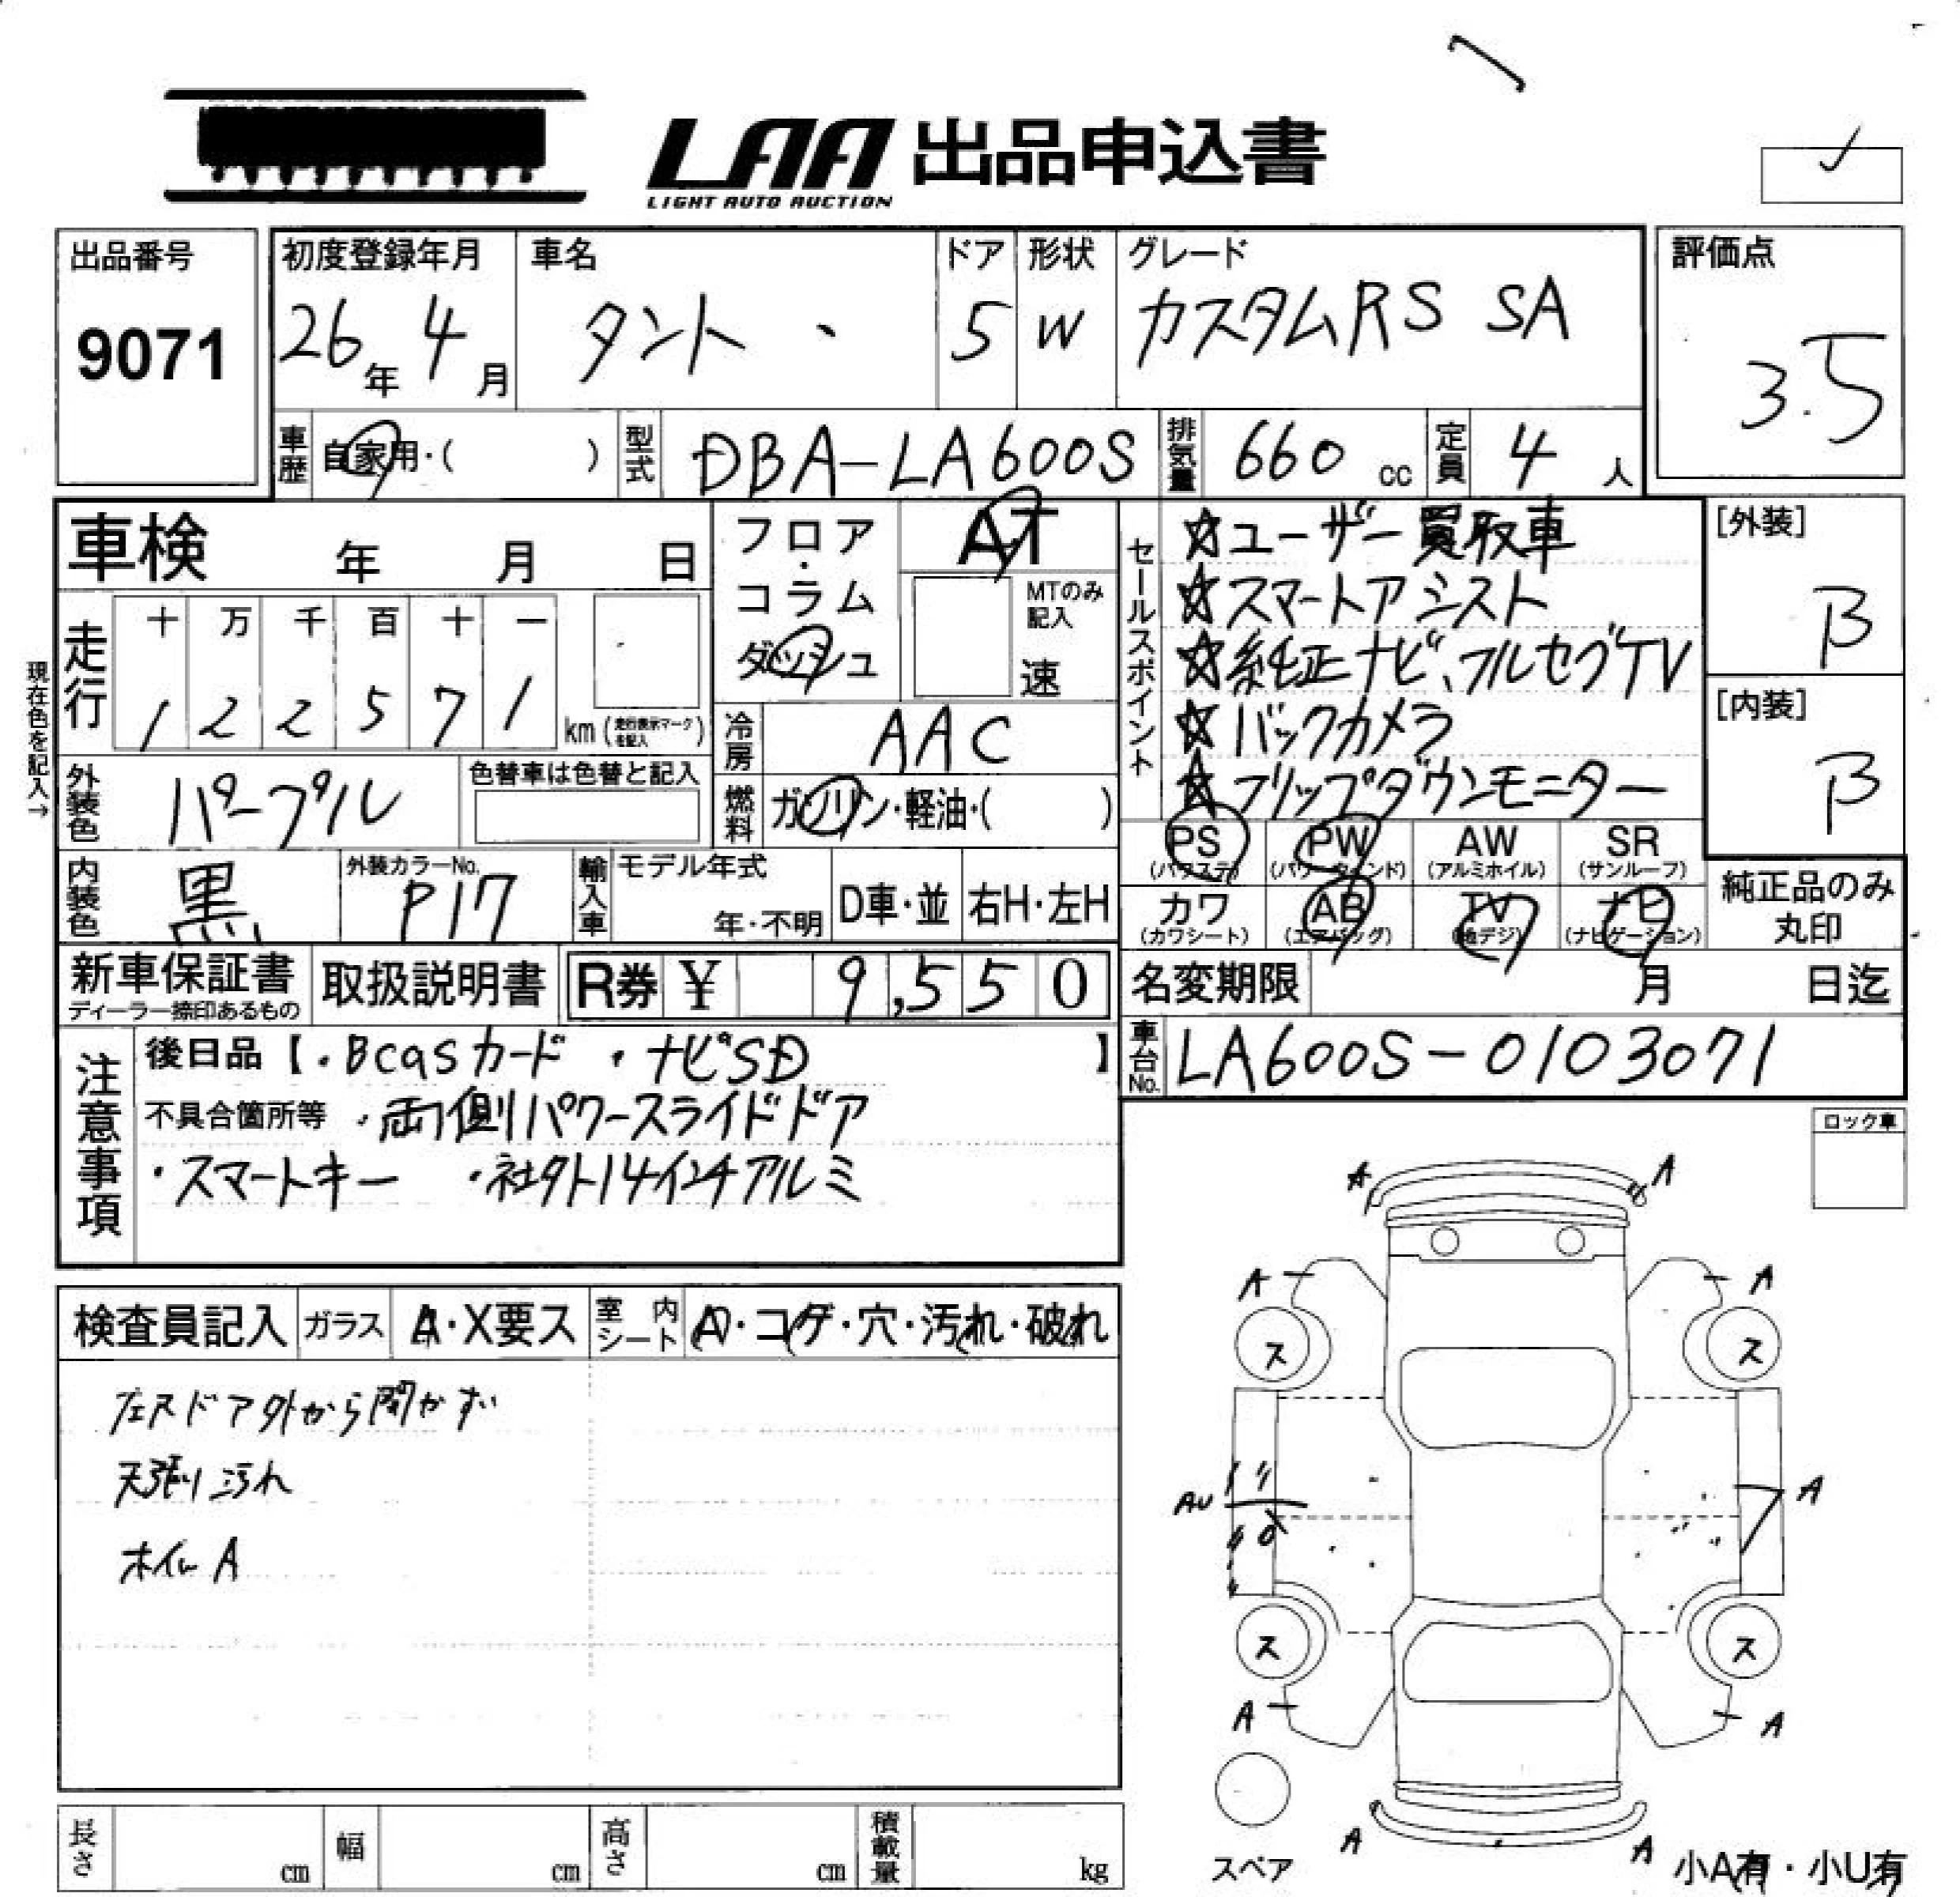 LAA 出品申込書
LIGHT AUTO AUCTION
出品番号
9071
初度登録年月
26年 4月
車名
タント
ドア
5
形状
W
グレード
カスタムRS SA
評価点
3.5
車歴 自家用・( )
型式 DBA-LA600S
排気量 660 cc
定員 4 人
車検 年 月 日
現在色を記入→
走行
十 万 千 百 十 一
1 2 2 5 7 1
km (走行表示マークを記入)
フロア・コラム
ダッシュ
AT
MTのみ記入
速
冷房 AAC
燃料 ガソリン・軽油・( )
外装色 パープル
色替車は色替と記入
内装色 黒
外装カラーNo.
P17
輸入車
モデル年式
年・不明
D車・並
右H・左H
セールスポイント
☆ユーザー買取車
☆スマートアシスト
☆純正ナビ、フルセグTV
☆バックカメラ
☆フリップダウンモニター
[外装]
B
[内装]
B
PS (パワステ)
PW (パワーウインド)
AW (アルミホイル)
SR (サンルーフ)
カワ (カワシート)
AB (エアバッグ)
TV (地デジ)
ナビ (ナビゲーション)
純正品のみ
丸印
新車保証書
ディーラー捺印あるもの
取扱説明書
R券 ¥ 9,550
名変期限 月 日迄
車台No. LA600S-0103071
注意事項
後日品【・Bcasカード ・ナビSD 】
不具合箇所等 ・両側パワースライドドア
・スマートキー ・社外14インチアルミ
ロック車
検査員記入
ガラス A・X要ス
室内シート A・コゲ・穴・汚れ・破れ
左Rドア外から開かず
天張り汚れ
ホイル A
A A
A A
ス ス
AU A
ス ス
A A
A A
スペア
小A有・小U有
長さ cm
幅 cm
高さ cm
積載量 kg